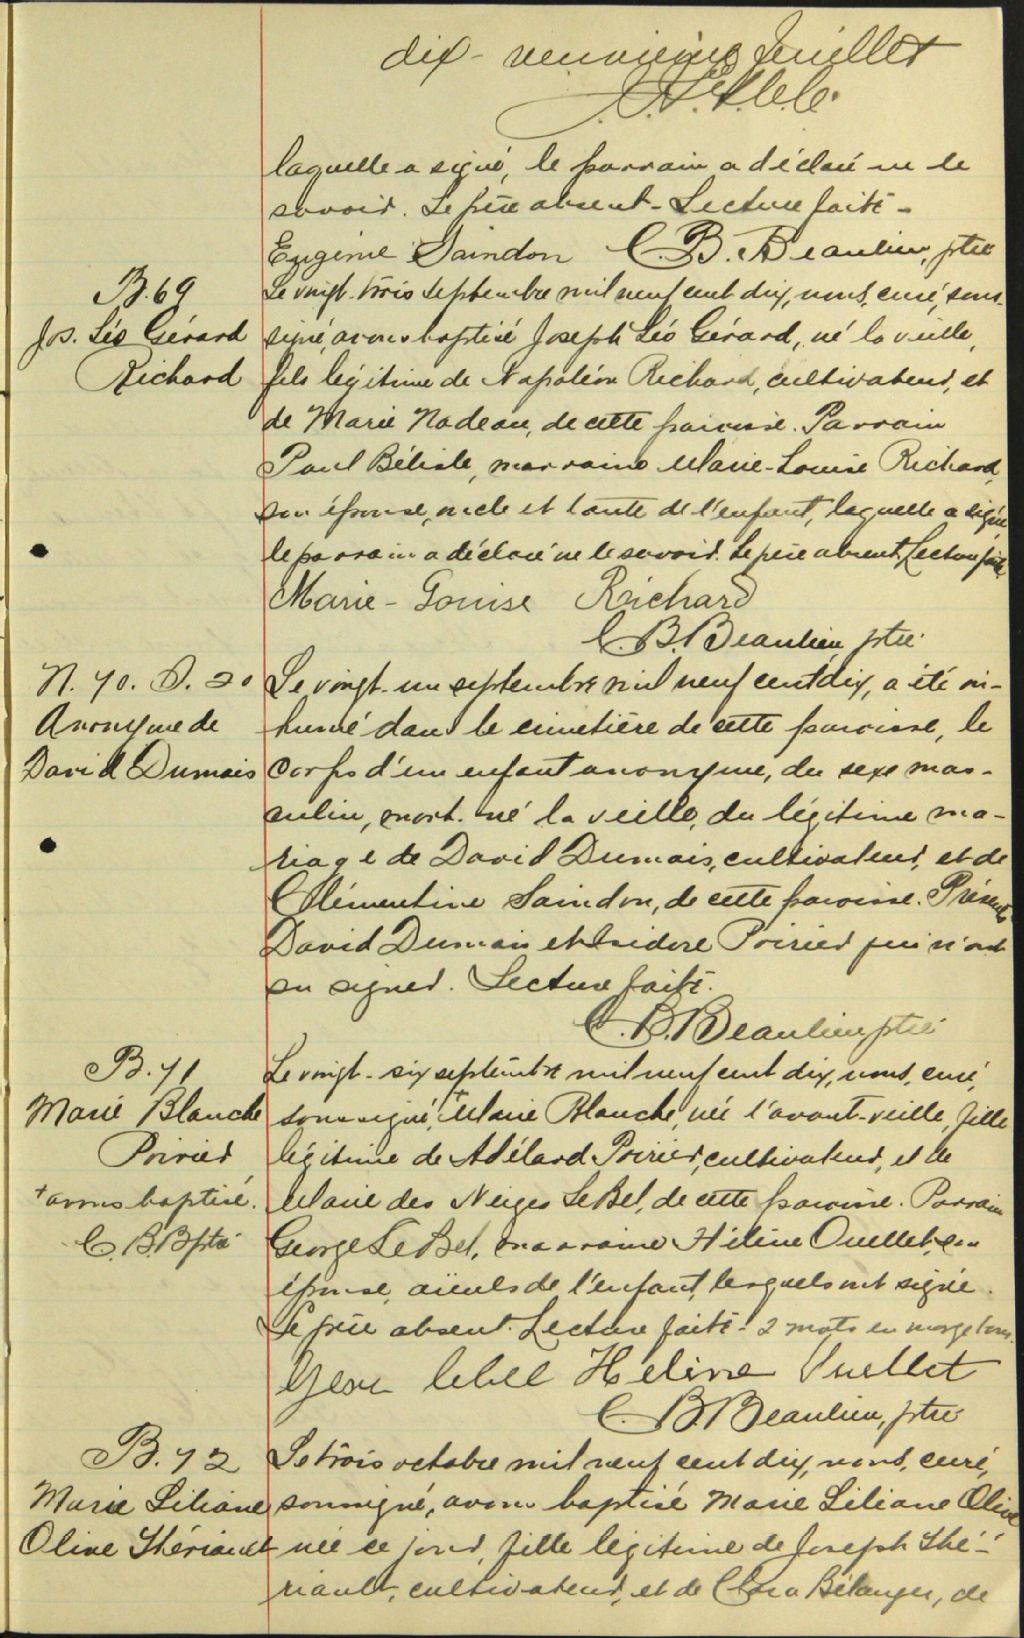 dix-neuvième feuillet
laquelle a signé, le parrain a déclaré ne le
savoir. Le père absent - Lecture faite -
Eugénie Saindon C. B. Beaulieu, ptre
B. 69
Jos. Léo Gérard
Richard
Le vingt-trois septembre mil neuf cent dix, nous, curé, sous-
signé, avons baptisé Joseph Léo Gérard, né la veille,
fils légitime de Napoléon Richard, cultivateur, et
de Marie Nadeau, de cette paroisse. Parrain
Paul Bélisle, marraine Marie-Louise Richard,
son épouse, oncle et tante de l'enfant, laquelle a signé,
le parrain a déclaré ne le savoir. Le père absent, Lecture faite
Marie-Louise Richard
C. B. Beaulieu, ptre
N. 70. S. 20
Anonyme de
David Dumais
Le vingt-un septembre mil neuf cent dix, a été in-
humé dans le cimetière de cette paroisse, le
corps d'un enfant anonyme, du sexe mas-
culin, mort-né la veille, du légitime ma-
riage de David Dumais, cultivateur, et de
Clémentine Saindon, de cette paroisse. Présents
David Dumais et Isidore Poirier qui n'ont
su signer. Lecture faite.
C. B. Beaulieu ptre
B. 71
Marie Blanche
Poirier
+ avons baptisé.
C. B. B ptre
Le vingt-six septembre mil neuf cent dix, nous, curé,
soussigné,+ Marie Blanche, née l'avant-veille, fille
légitime de Adélard Poirier, cultivateur, et de
Marie des Neiges LeBel, de cette paroisse. Parrain
George LeBel, marraine Hélène Ouellet, son
épouse, aïeuls de l'enfant, lesquels ont signé.
Le père absent. Lecture faite - 2 mots en marge bons.
lebel Helène Ouellet
C. B. Beaulieu, ptre
B. 72
Marie Liliane
Olive Thériault
Le trois octobre mil neuf cent dix, nous, curé,
soussigné, avons baptisé Marie Liliane Olive
née ce jour, fille légitime de Joseph Thé-
riault, cultivateur, et de Clara Bélanger, de